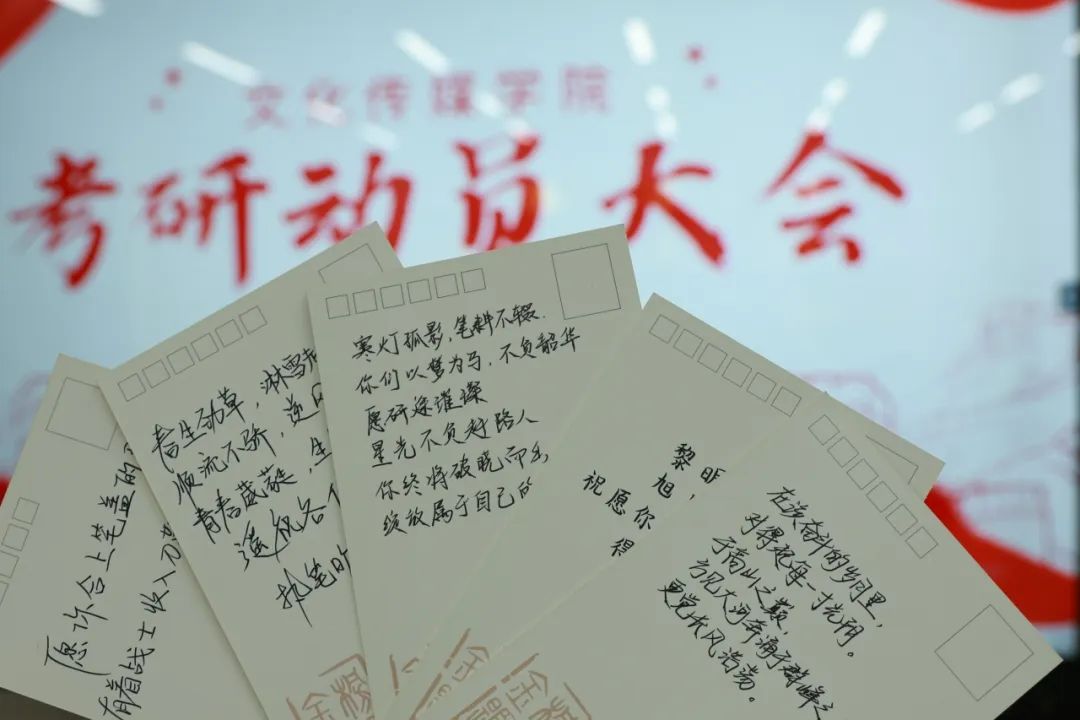 文化传媒学院
考研动员大会
愿你合上笔盖的
有着战士收刀
春生劲草，淋雪
顺流不骄，逆风
青春葳蕤，生
遥祝各
执笔
寒灯孤影，笔耕不辍.
你们以梦为马，不负韶华
愿研途璀璨
星光不负赶路人
你终将破晓而出
绽放属于自己的
黎昕
旭，
祝愿你
得
在该奋斗的岁月里，
对得起每一寸光阴。
于高山之巅，
方见大河奔涌于群峰之
更觉长风浩荡。